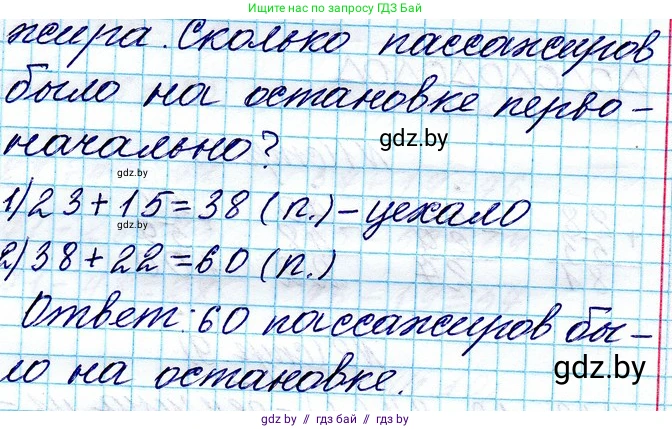 Пишите нас по запросу ГДЗ БАЙ в любом поисковике
жира. Сколько пассажиров
было на остановке перво-
gdz.by
начально?
gdz.by
1) 23 + 15 = 38 (п.) - уехало
gdz.by
2) 38 + 22 = 60 (п.)
Ответ: 60 пассажиров бы-
ло на остановке.
gdz.by
gdz.by // гдз бай // gdz by